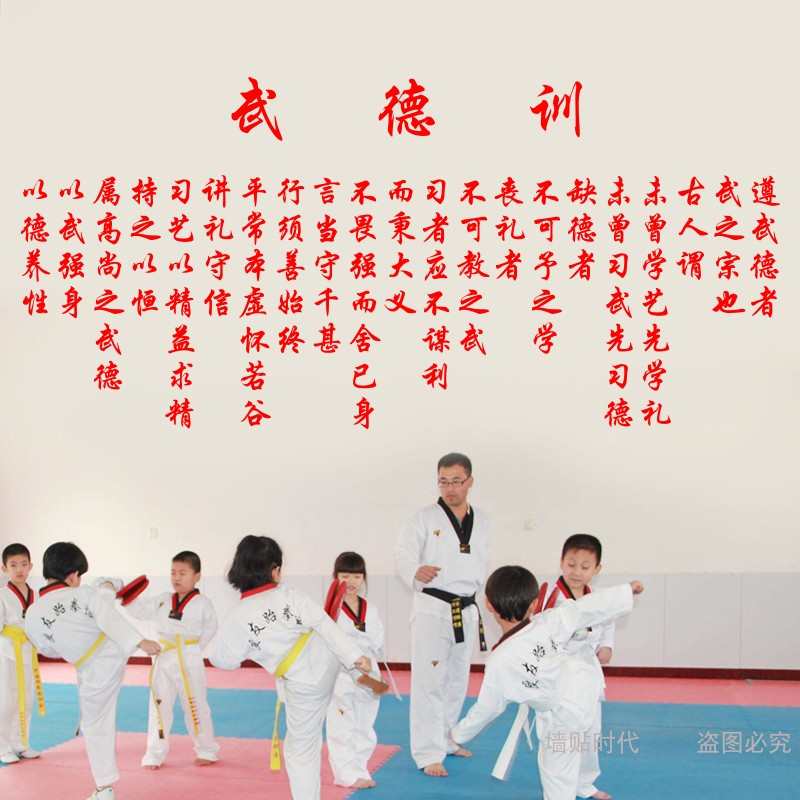 武德训
遵武德者
武之宗也
古人谓
未曾学艺先学礼
未曾习武先习德
缺德者
不可予之学
丧礼者
不可教之武
习者应不谋利
而秉大义
不畏强而舍已身
言当守千甚
行须善始终
平常本虚怀若谷
讲礼守信
习艺以精益求精
持之以恒
属高尚之武德
以武强身
以德养性
墙贴时代 盗图必究